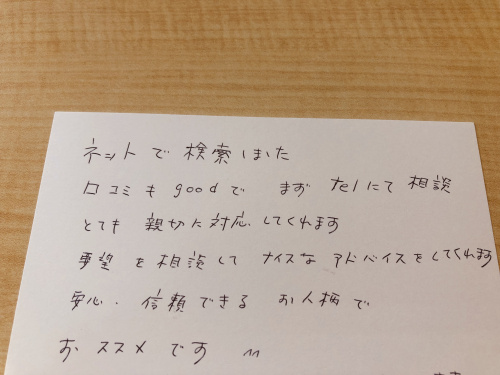 ネットで検索しました
口コミも goodで まず telにて 相談
とても 親切に対応してくれます
要望を相談して ナイスな アドバイスをしてくれます
安心、信頼できる お人柄で
おススメです ^^